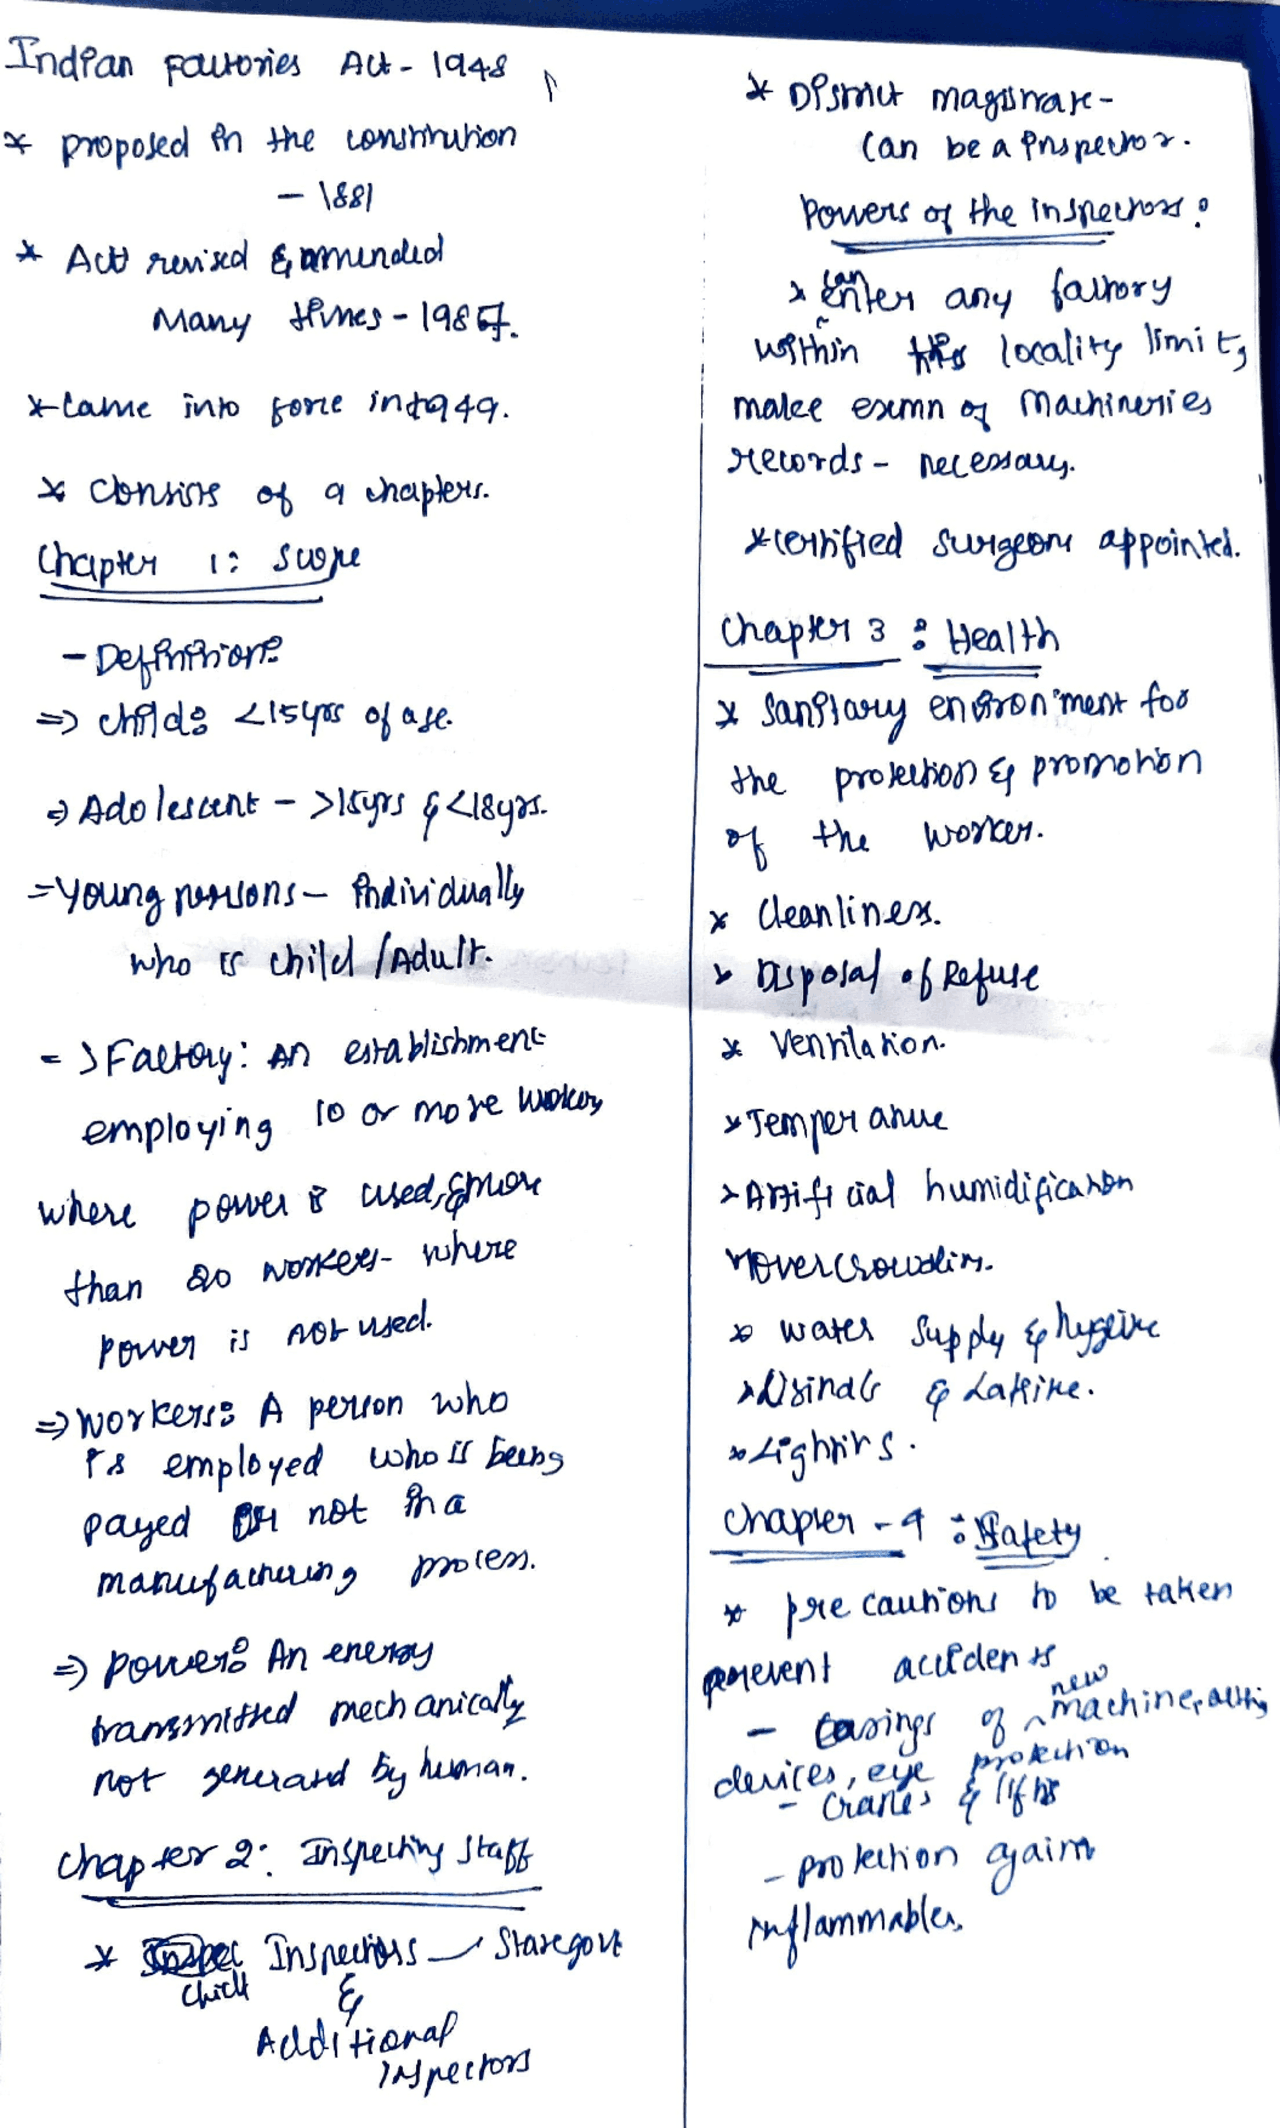 Indian factories Act - 1948
* proposed in the constitution
- 1881
* Act revised & amended
Many times - 1987.
* Came into force in 1949.
* Consists of 9 chapters.
Chapter 1: Scope
- Definitions
=> child: <15yrs of age.
=> Adolescent - >15yrs & <18yrs.
= Young persons - individually
who is child / Adult.
=> Factory: An establishment
employing 10 or more workers
where power is used, & more
than 20 workers - where
power is not used.
=> Workers: A person who
is employed who is being
payed or not in a
manufacturing process.
=> Power: An energy
transmitted mechanically
not generated by human.
Chapter 2: Inspecting Staff
* Inspectors - State govt
Chief &
Additional
Inspectors
* District magistrate -
Can be a inspector.
Powers of the inspectors:
* can enter any factory
within his locality limit,
make exmn of Machineries
records - necessary.
* Certified surgeons appointed.
Chapter 3 : Health
* Sanitary environment for
the protection & promotion
of the worker.
* Cleanliness.
* Disposal of Refuse
* Ventilation.
* Temperature
* Artificial humidification
* Overcrowding.
* water supply & hygeine
* Urinals & Latrine.
* Lightins.
Chapter - 4 : Safety
* precautions to be taken
prevent accidents
- Casings of new machine,
devices, eye protection
- Cranes & lifts
- protection against
inflammables.